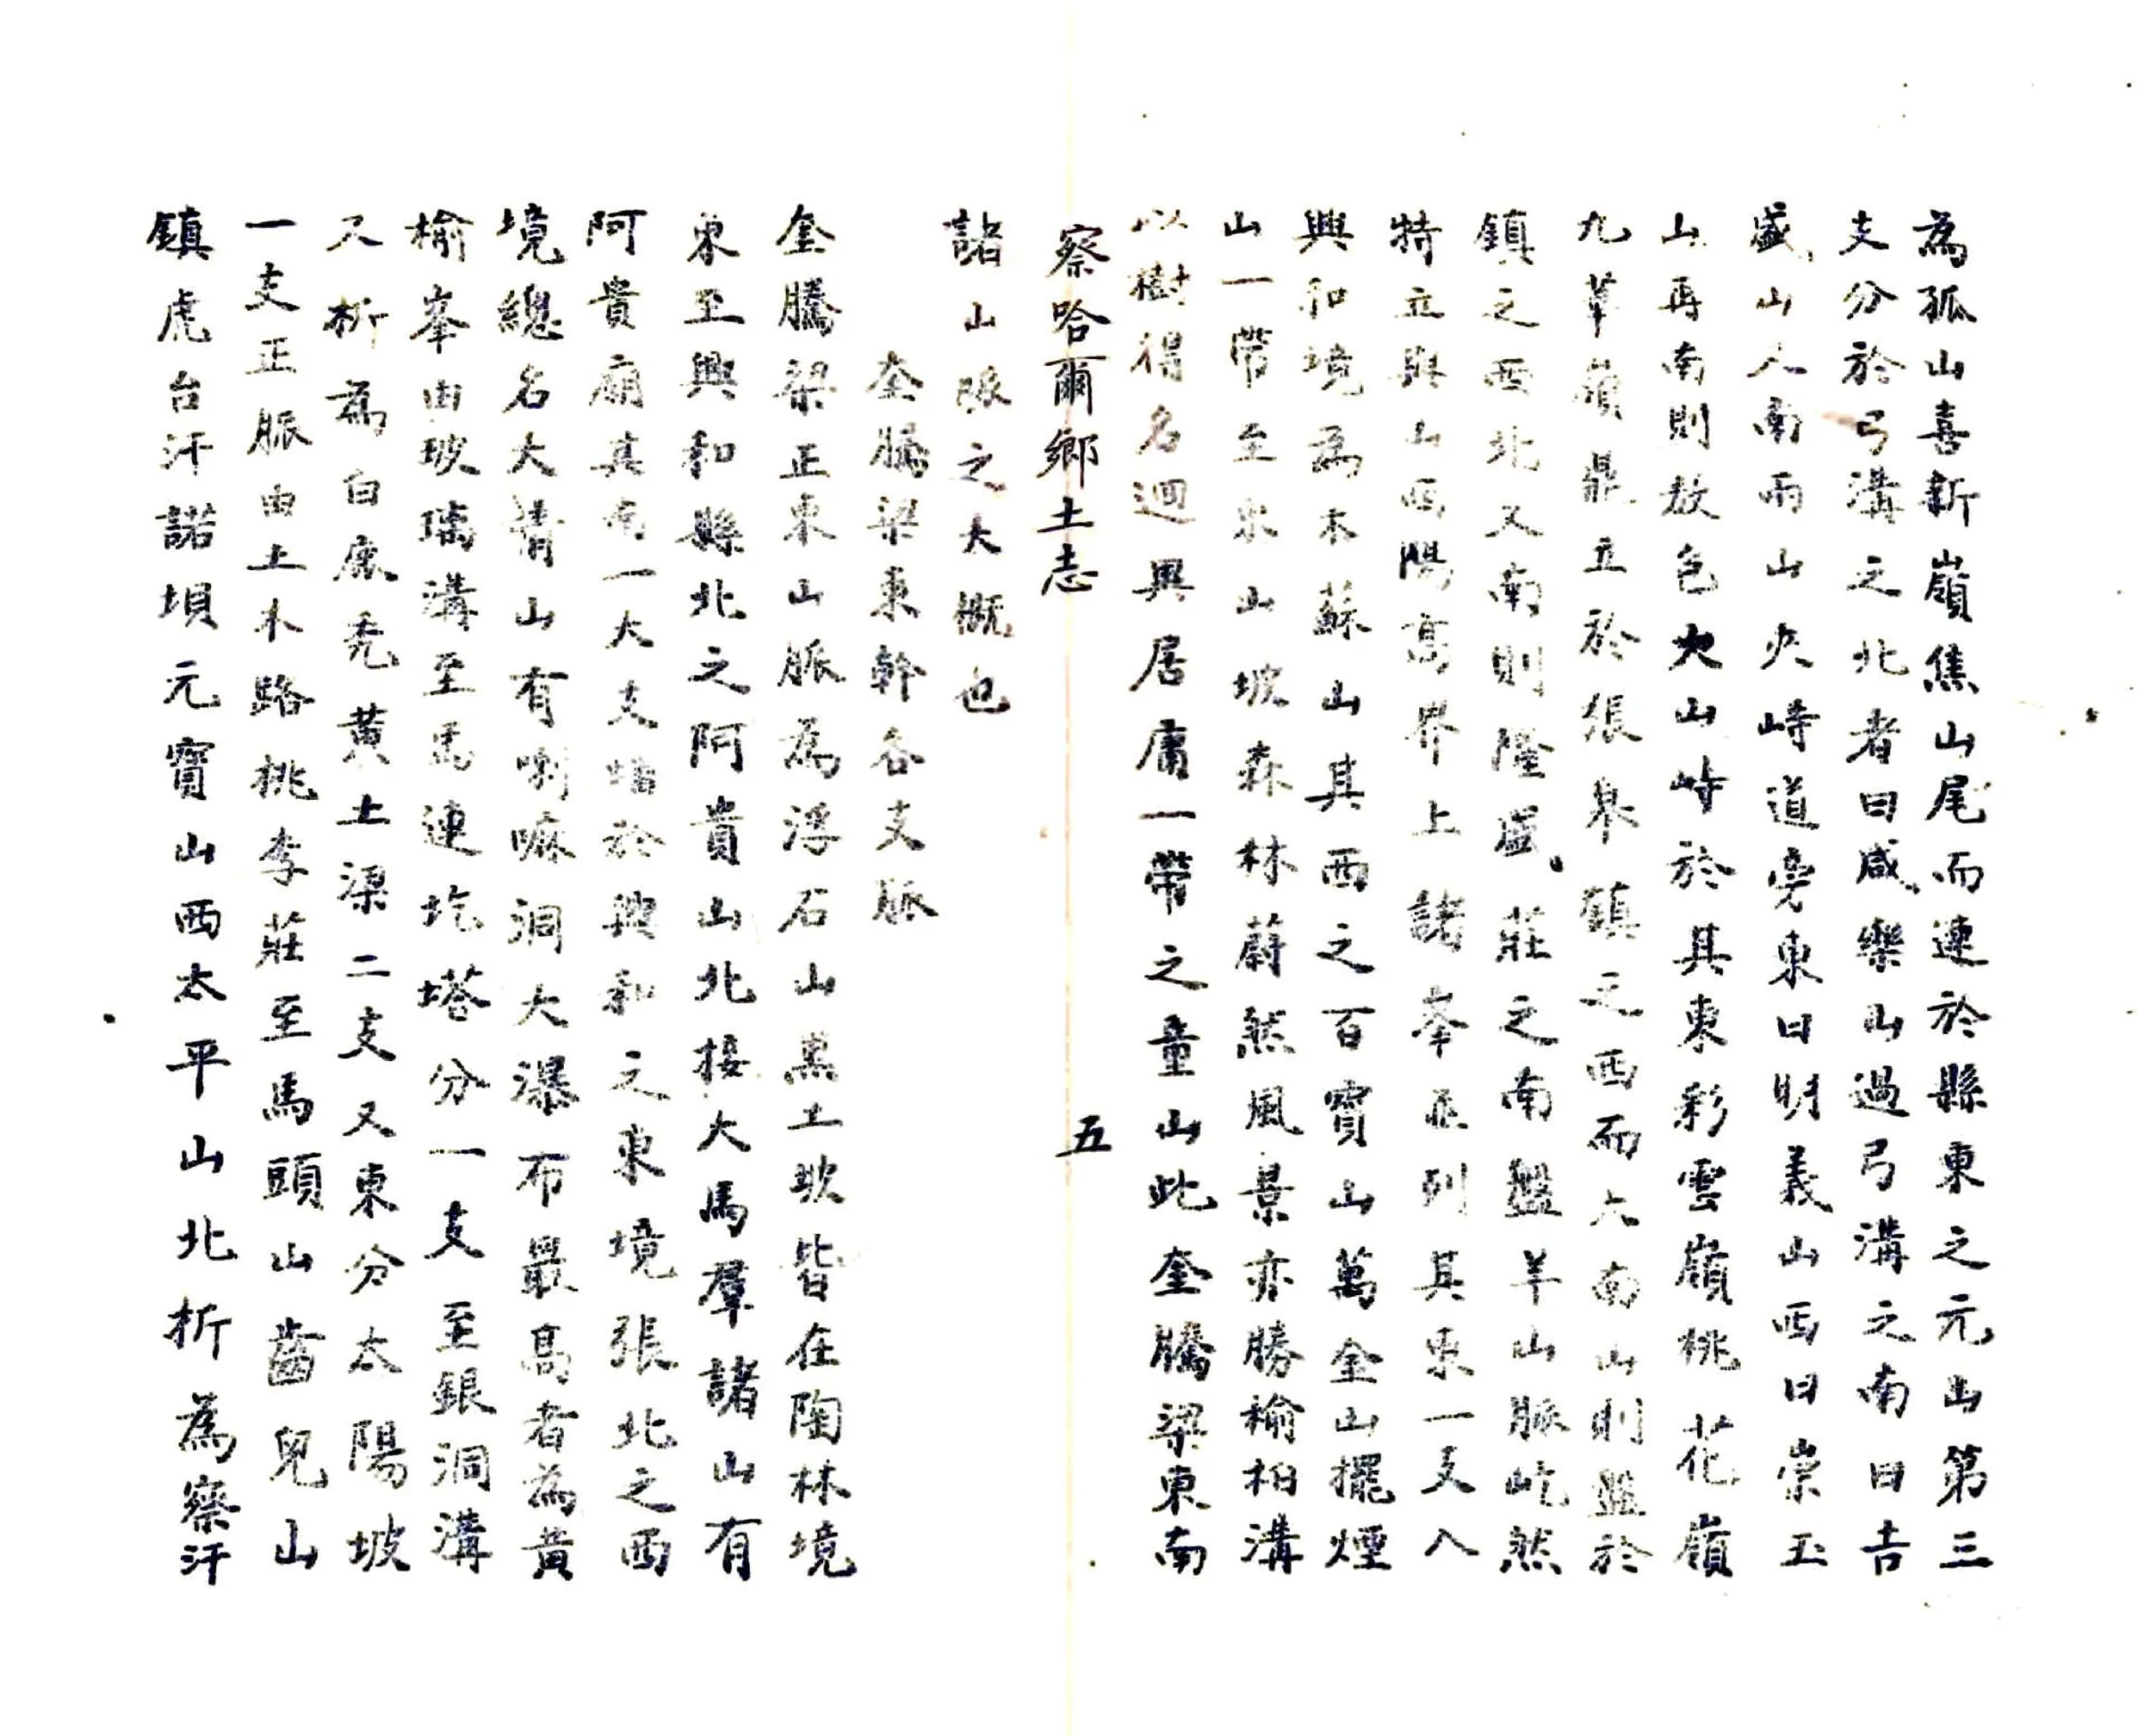 為孤山喜新嶺焦山尾而連於縣東之元山第三
支分於弓溝之北者曰咸樂山過弓溝之南曰吉
盛山人南兩山夾峙道旁東曰明義山西曰崇玉
山再南則敖包大山峙於其東彩雲嶺桃花嶺
九華嶺鼎立於張皋鎮之西而大南山則盤於
鎮之西北又南則隆盛莊之南盤羊山脈屹然
特立與山西陽高界上諸峯並列其東一支入
興和境為木蘇山其西之百寶山萬金山擺煙
山一帶至東山坡森林蔚然風景亦勝榆柏溝
以樹得名迥異居庸一帶之童山此奎騰梁東南
察哈爾鄉土志 五
諸山脈之大概也
奎騰梁東幹各支脈
奎騰梁正東山脈為浮石山黑土坡皆在陶林境
東至興和縣北之阿貴山北接大馬羣諸山有
阿貴廟其南一大支蟠於興和之東境張北之西
境總名大青山有喇嘛洞大瀑布最高者為黃
榆峯由玻璃溝至馬連圪塔分一支至銀洞溝
又析為白鹿禿黃土梁二支又東分太陽坡
一支正脈由土木路桃李莊至馬頭山齒兒山
鎮虎台汗諾垻元寶山西太平山北折為察汗